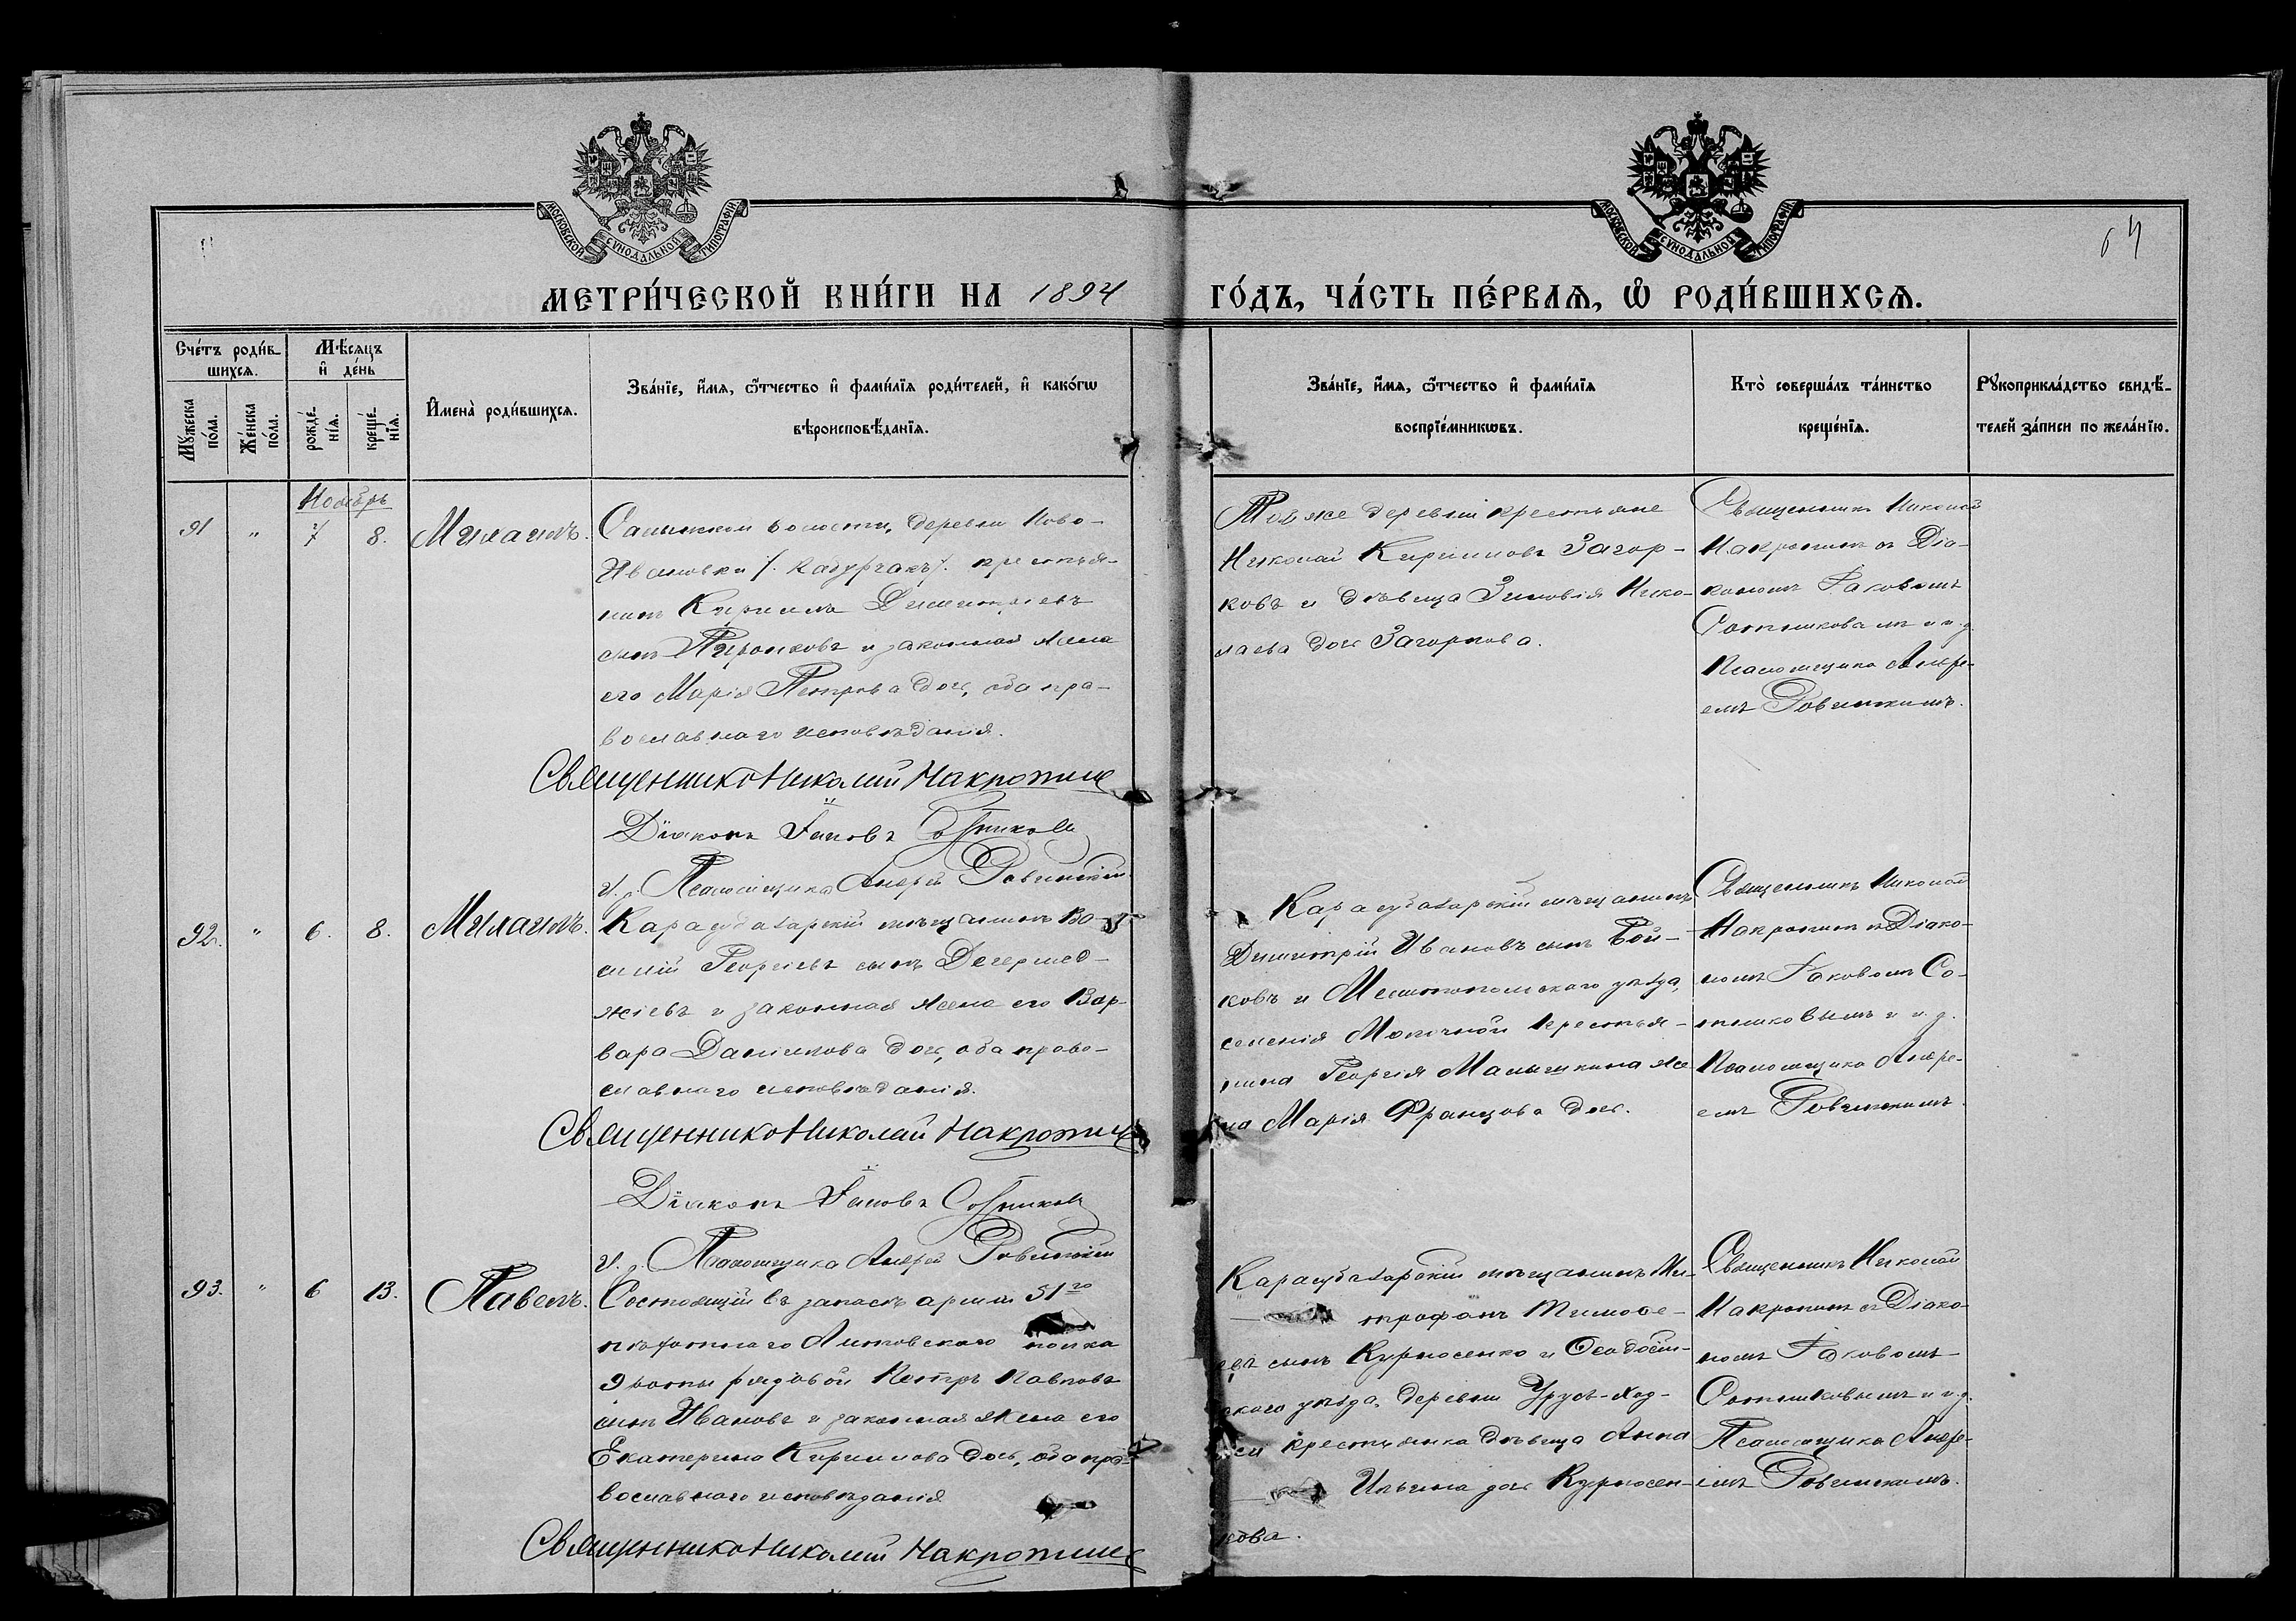 МОСКОВСКОЙ СѴНОДАЛЬНОЙ ТИПОГРАФІИ
МОСКОВСКОЙ СѴНОДАЛЬНОЙ ТИПОГРАФІИ
МЕТРИ́ЧЕСКОЙ КНИ́ГИ НА 1894
ГО́ДЪ, ЧА́СТЬ ПЕ́РВАѦ, Ѡ РОДИ́ВШИХСѦ.
Сче́тъ роди́в-
шихсѧ.
Мѣ́сѧцъ
и де́нь
Мꙋ́жеска
по́ла.
Же́нска
по́ла.
рожде́-
нїѧ.
креще́-
нїѧ.
Имена̀ роди́вшихсѧ.
Зва́нїе, и́мѧ, ѻ́тчество и фами́лїѧ роди́телей, и како́гѡ
вѣроисповѣ́данїѧ.
Зва́нїе, и́мѧ, ѻ́тчество и фами́лїѧ
воспрїе́мникѡвъ.
Кто̀ соверша́лъ та́инство
креще́нїѧ.
Рꙋкоприкла́дство свидѣ́-
телей за́писи по жела́нїю.
Ноябрь
91 " 7 8. Михаилъ.
волости, деревни Ново-
Ивановки /. /. крестья-
нинъ Кириллъ Димитріевъ
сынъ и законная жена
его Марія Петрова дочь, оба пра-
вославнаго исповѣданія.
Священникъ Николай Накропинъ
Діаконъ Іаковъ Сотниковъ
и. д. Псаломщика Андрей Ровинскій
Той же деревни крестьяне
Николай Кирилловъ Загор-
ковъ и дѣвица Зиновія Нико-
лаева дочь Загоркова.
Священникъ Николай
Накропинъ съ Діа-
кономъ Іаковомъ
Сотниковымъ и и. д.
Псаломщика Андре-
емъ Ровинскимъ.
92. " 6. 8. Михаилъ.
Карасубазарскій мѣщанинъ Ва-
силій Георгіевъ сынъ Дегермед-
жіевъ и законная жена его Вар-
вара Даниилова дочь, оба право-
славнаго исповѣданія.
Священникъ Николай Накропинъ
Діаконъ Іаковъ Сотниковъ
и. д. Псаломщика Андрей Ровинскій
Карасубазарскій мѣщанинъ
Димитрій Ивановъ сынъ Бой-
ковъ и Мелитопольскаго уѣзда,
селенія Молочной крестья-
нина Георгія Малышкина же-
на Марія Францова дочь.
Священникъ Николай
Накропинъ съ Діако-
номъ Іаковомъ Со-
тниковымъ и и. д.
Псаломщика Андре-
емъ Ровинскимъ.
93. " 6 13. Павелъ.
Состоящій въ запасѣ арміи 51го
пѣхотнаго Литовскаго полка
9 роты рядовой Петръ Павловъ
сынъ Ивановъ и законная жена его
Екатерина Кириллова дочь, оба пра-
вославнаго исповѣданія
Священникъ Николай Накропинъ
Карасубазарскій мѣщанинъ Ми-
трофанъ Тимофе-
евъ сынъ Курносенко и Ѳеодосій-
скаго уѣзда, деревни Урусъ-Ход-
жи крестьянка дѣвица Анна
Ильина дочь Курносен-
кова.
Священникъ Николай
Накропинъ съ Діако-
номъ Іаковомъ
Сотниковымъ и и. д.
Псаломщика Андре-
емъ Ровинскимъ.